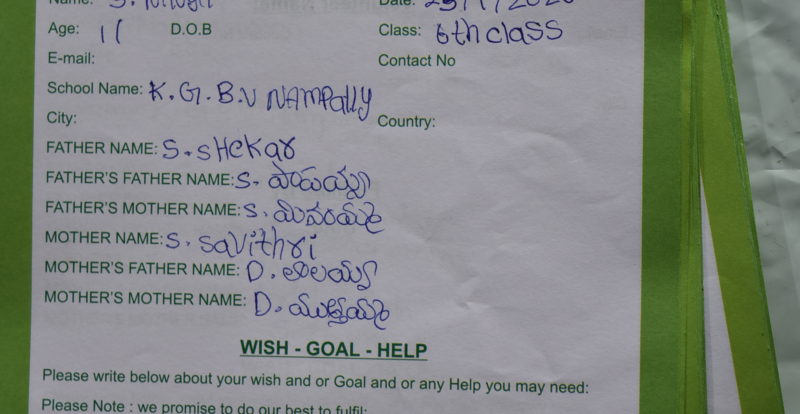 Name: S.
Date: 23/1/2020
Age: 11 D.O.B
Class: 6th class
E-mail:
Contact No
School Name: K.G.B.V NAMPally
City:
Country:
FATHER NAME: S. SHekar
FATHER'S FATHER NAME: S. పాపయ్య
FATHER'S MOTHER NAME: S.
MOTHER NAME: S. Savithri
MOTHER'S FATHER NAME: D. లాలయ్య
MOTHER'S MOTHER NAME: D. ముత్తమ్మ
WISH - GOAL - HELP
Please write below about your wish and or Goal and or any Help you may need:
Please Note : we promise to do our best to fulfil: